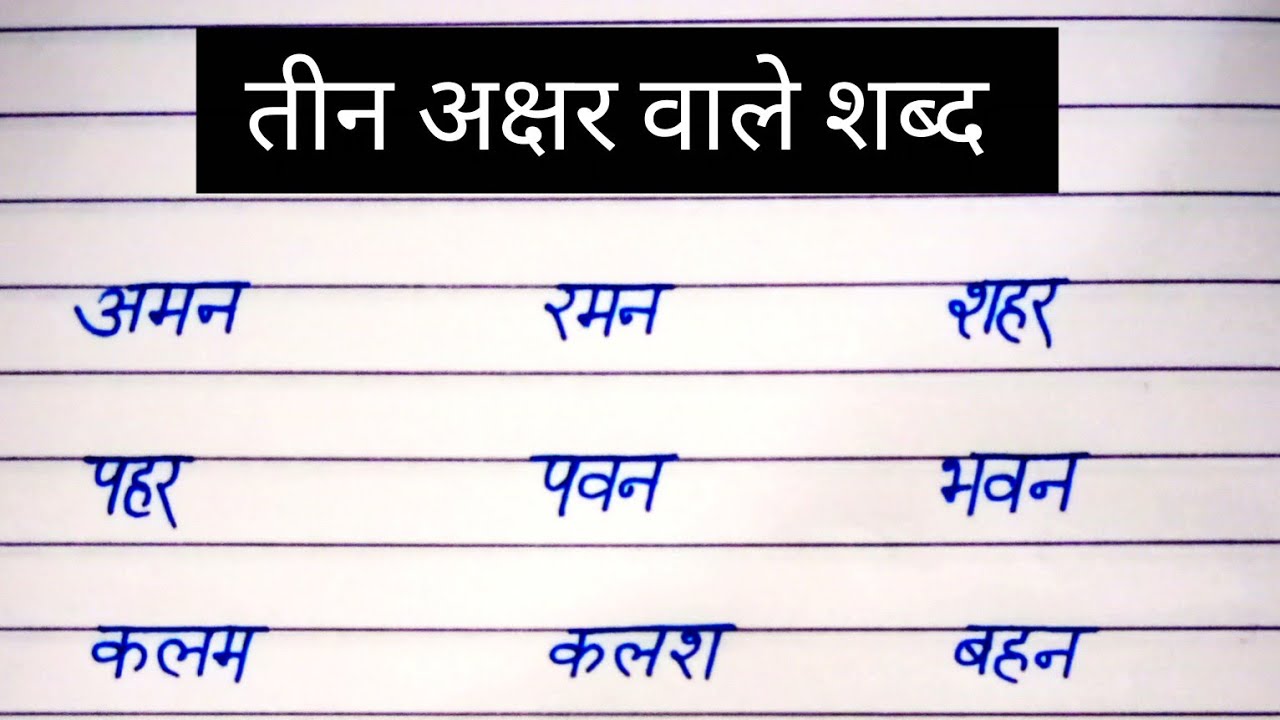 तीन अक्षर वाले शब्द
अमन रमन शहर
पहर पवन भवन
कलम कलश बहन